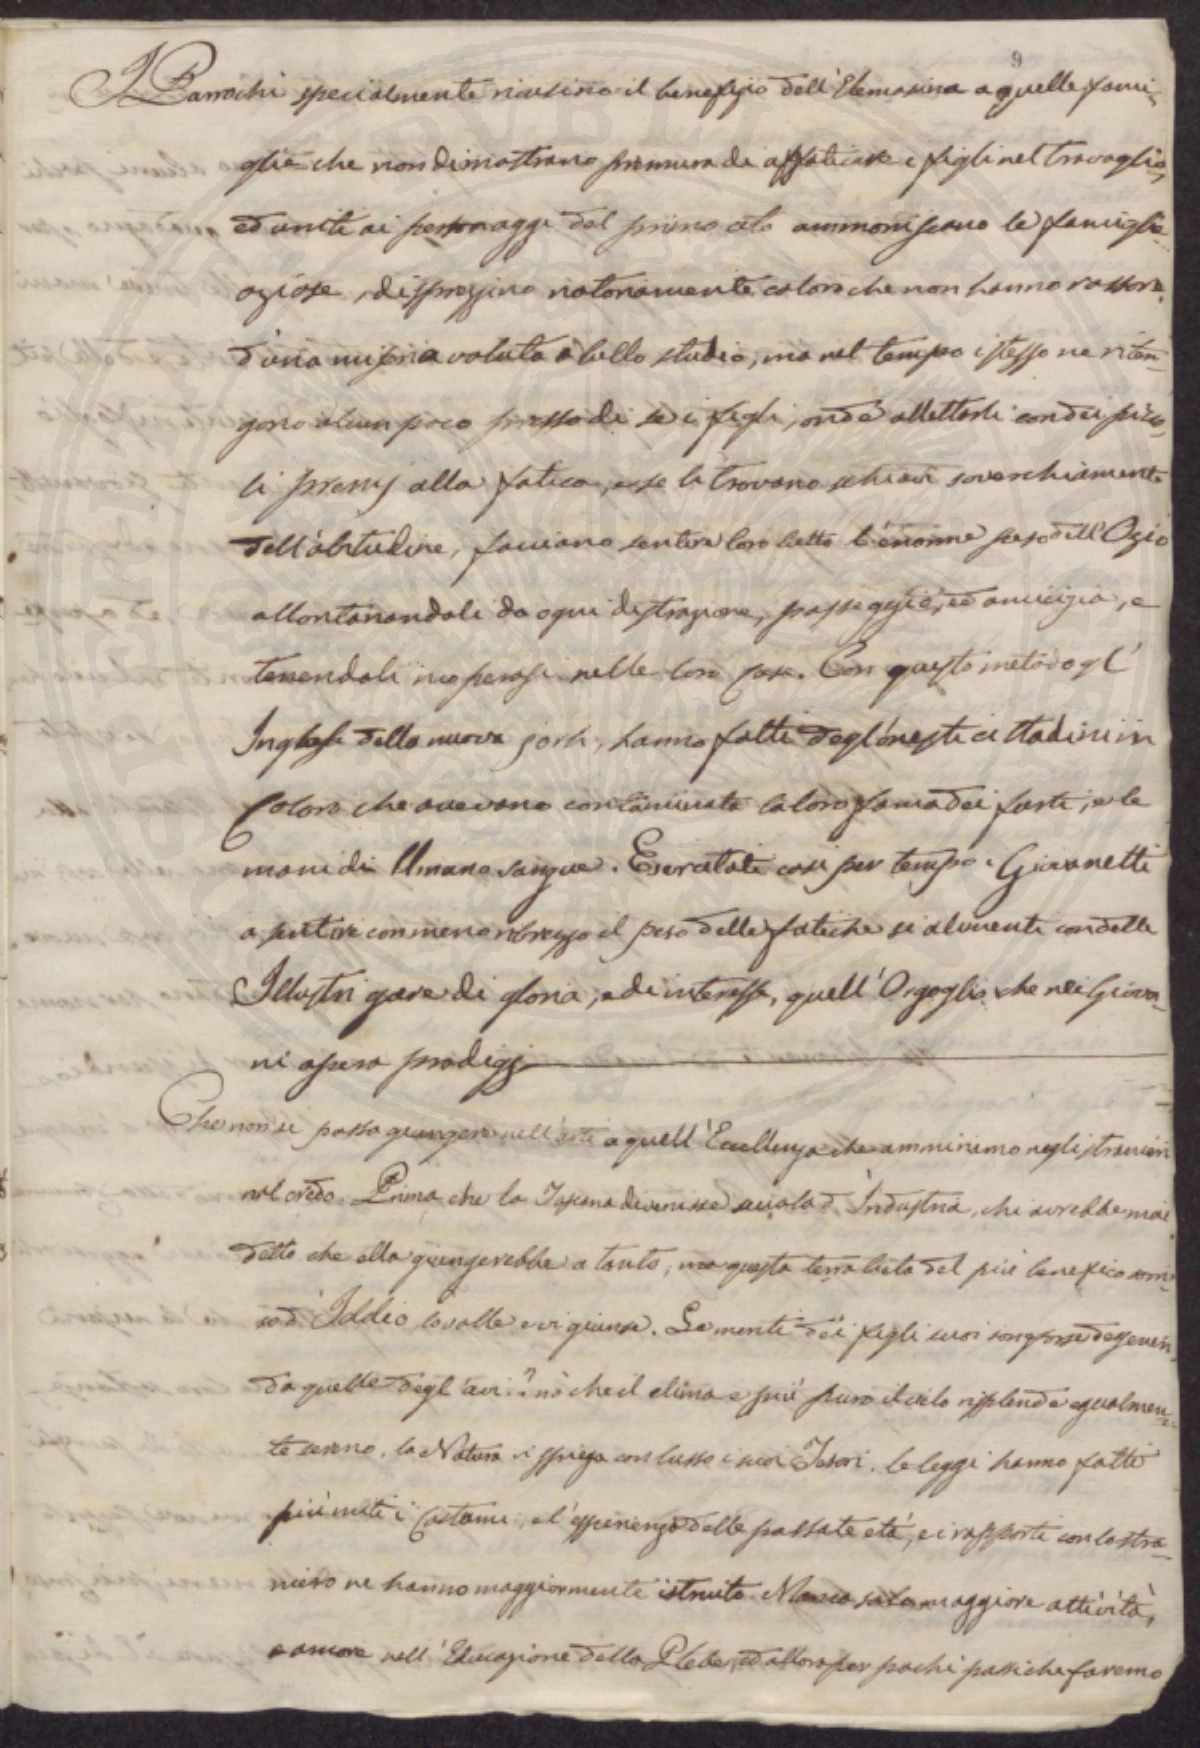 9
I Parrochi specialmente ricusino il benefizio dell'Elemosina a quelle fami-
glie che non dimostrano premura di affaticare i figli nel travaglio,
ed uniti ai personaggi del primo ceto ammoniscano le famiglie
oziose, disprezzino notoriamente coloro che non hanno rossore
d'una miseria voluta a bello studio, ma nel tempo istesso ne riten-
gono alcun poco presso di se i figli, onde allettarli con dei picco-
li premj alla fatica, e se li trovano schiavi soverchiamente
dell'abitudine, facciano sentire loro tutto l'enorme peso dell'Ozio
allontanandoli da ogni distrazione, passeggio, ed amicizia, e
tenendoli inoperosi nelle loro case. Con questo metodo gl'
Inglesi della nuova jork, hanno fatti degl'onesti cittadini in
Coloro che avevano contaminata la loro fama dei furti, e le
mani di Umano sangue. Esercitati così per tempo i Giovanetti
a sentire con meno ribrezzo il peso delle fatiche si alimenti con delle
Illustri gare di gloria, e di interesse, quell'Orgoglio che nei Giova-
ni opera prodigj
Che non si possa giungere nell'arti a quell'Eccellenza che ammiriamo negli stranieri
nol credo. Prima che la Toscana divenisse scuola d'Industria, chi avrebbe mai
detto che ella giungerebbe a tanto, ma questa terra lieta del più benefico sorri-
so d'Iddio lo volle e vi giunse. Le menti dei figli suoi son forse degeneri
da quelle degl'avi? nò che il clima e più puro il cielo risplende egualmen-
te sereno, la Natura vi spiega con lusso i suoi Tesori, le leggi hanno fatti
più miti i Costumi, e l'esperienza delle passate età, e i rapporti con lo stra-
niero ne hanno maggiormente istruito. Manca solo maggiore attività,
e amore nell'Educazione della Plebe, ed allora per pochi passi che faremo